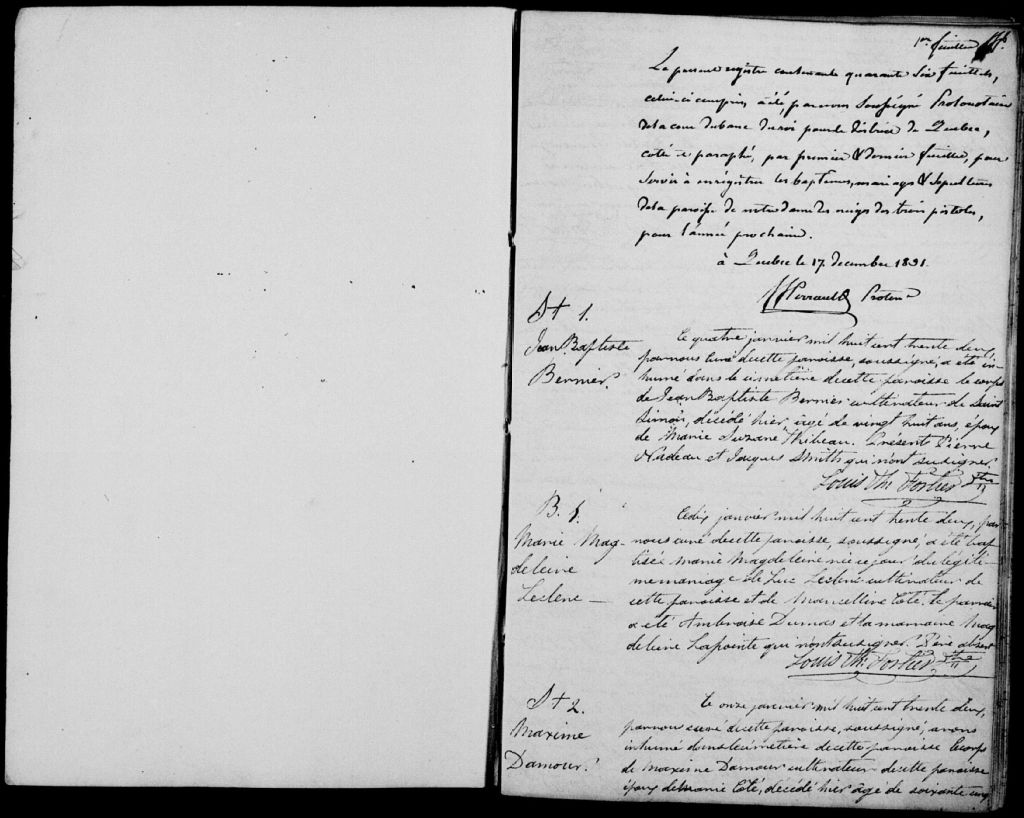 1er feuillet
Le present registre contenante quarante Six feuillets,
celui-ci compris, a été, par nous Soussigné Protonotaire
de la cour du banc du roi pour le district de Quebec,
coté et paraphé, par premier & dernier feuillet, pour
Servir à enrégistrer les baptêmes, mariages & Sepultures
de la paroisse de notre dame des neiges des trois pistoles,
pour l'année prochaine.
à Quebec le 17 decembre 1831.
Perrault Proton re
St 1.
Jean Baptiste
Bernier.
Le quatre janvier mil huit cent trente deux,
par nous curé de cette paroisse, soussigné, a été in-
humé dans le cimetière de cette paroisse le corps
de Jean Baptiste Bernier cultivateur de Saint
Simon, décédé hier, agé de vingt huit ans, époux
de Marie Suzane Thibeau. Présent Pierre
Nadeau et Jacques Smith qui n'ont su signer.
Louis Th. Fortier Ptre
B. 1.
Marie Mag-
deleine
Leclerc —
Le dix janvier mil huit cent trente deux, par
nous curé de cette paroisse, soussigné, a été bap
tisée Marie Magdeleine née ce jour du légiti-
me mariage de Luc Leclerc cultivateur de
cette paroisse et de Marcelline Coté. Le parrain
a été Ambroise Dumas et la marraine Mag
deleine Lapointe qui n'ont su signer. Père absent
Louis Th. Fortier Ptre
St 2.
Maxime
Damour.
Le onze janvier mil huit cent trente deux,
par nous curé de cette paroisse, soussigné, avons
inhumé dans le cimetière de cette paroisse le corps
de Maxime Damour cultivateur de cette paroisse
époux de Marie Coté, décédé hier agé de soixante cinq